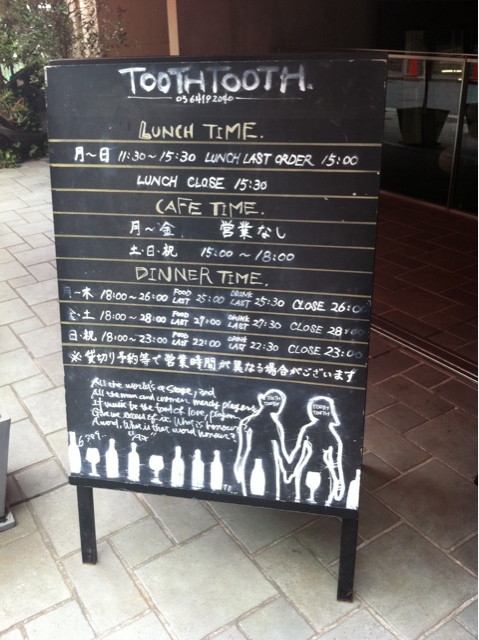 TOOTHTOOTH.
03 6419 2040
LUNCH TIME.
月〜日 11:30〜15:30 LUNCH LAST ORDER 15:00
LUNCH CLOSE 15:30
CAFE TIME.
月〜金 営業なし
土・日・祝 15:00〜18:00
DINNER TIME.
月〜木 18:00〜26:00 FOOD LAST 25:00 DRINK LAST 25:30 CLOSE 26:00
金・土 18:00〜28:00 FOOD LAST 27:00 DRINK LAST 27:30 CLOSE 28:00
日・祝 18:00〜23:00 FOOD LAST 22:00 DRINK LAST 22:30 CLOSE 23:00
※貸切り予約等で営業時間が異なる場合がございます
All the world's a stage, and
All the men and women merely players
If music be the food of love, play on
Give me excess of it. What is honour
A word. What is that word honour?
TOOTH TOOTH
TOOTH TOOTH